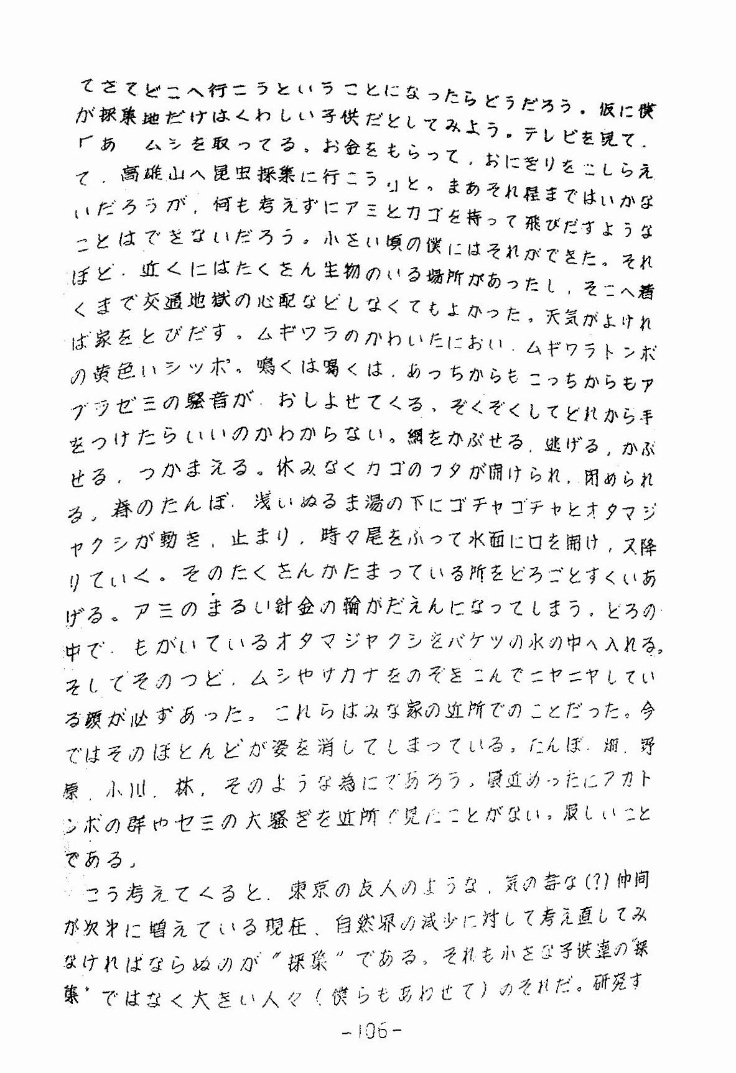 てさてどこへ行こうということになったらどうだろう。仮に僕
が採集地だけはくわしい子供だとしてみよう。テレビを見て、
「あ　ムシを取ってる。お金をもらって、おにぎりをこしらえ
て、高雄山へ昆虫採集に行こう」と。まあそれ程まではいかな
いだろうが、何も考えずにアミとカゴを持って飛びだすような
ことはできないだろう。小さい頃の僕にはそれができた。それ
ほど、近くにはたくさん生物のいる場所があったし、そこへ着
くまで交通地獄の心配などしなくてもよかった。天気がよけれ
ば家をとびだす。ムギワラのかわいたにおい、ムギワラトンボ
の黄色いシッポ。鳴くは鳴くは、あっちからもこっちからもア
ブラゼミの騒音が、おしよせてくる、ぞくぞくしてどれから手
をつけたらいいのかわからない。網をかぶせる、逃げる、かぶ
せる、つかまえる。休みなくカゴのフタが開けられ、閉められ
る。春のたんぼ、浅いぬるま湯の下にゴチャゴチャとオタマジ
ャクシが動き、止まり、時々尾をふって水面に口を開け、又降
りていく。そのたくさんかたまっている所をどろごとすくいあ
げる。アミのまるい針金の輪がだえんになってしまう。どろの
中で、もがいているオタマジャクシをバケツの水の中へ入れる。
そしてそのつど、ムシやサカナをのぞきこんでニヤニヤしてい
る顔が必ずあった。これらはみな家の近所でのことだった。今
ではそのほとんどが姿を消してしまっている。たんぼ、畑、野
原、小川、林、そのような為にであろう。最近めったにアカト
ンボの群やセミの大騒ぎを近所で見たことがない。淋しいこと
である。
こう考えてくると、東京の友人のような、気の毒な(?)仲間
が次第に増えている現在、自然界の減少に対して考え直してみ
なければならぬのが〝採集〟である。それも小さな子供達の〝採
集〟ではなく大きい人々(僕らもあわせて)のそれだ。研究す
-106-